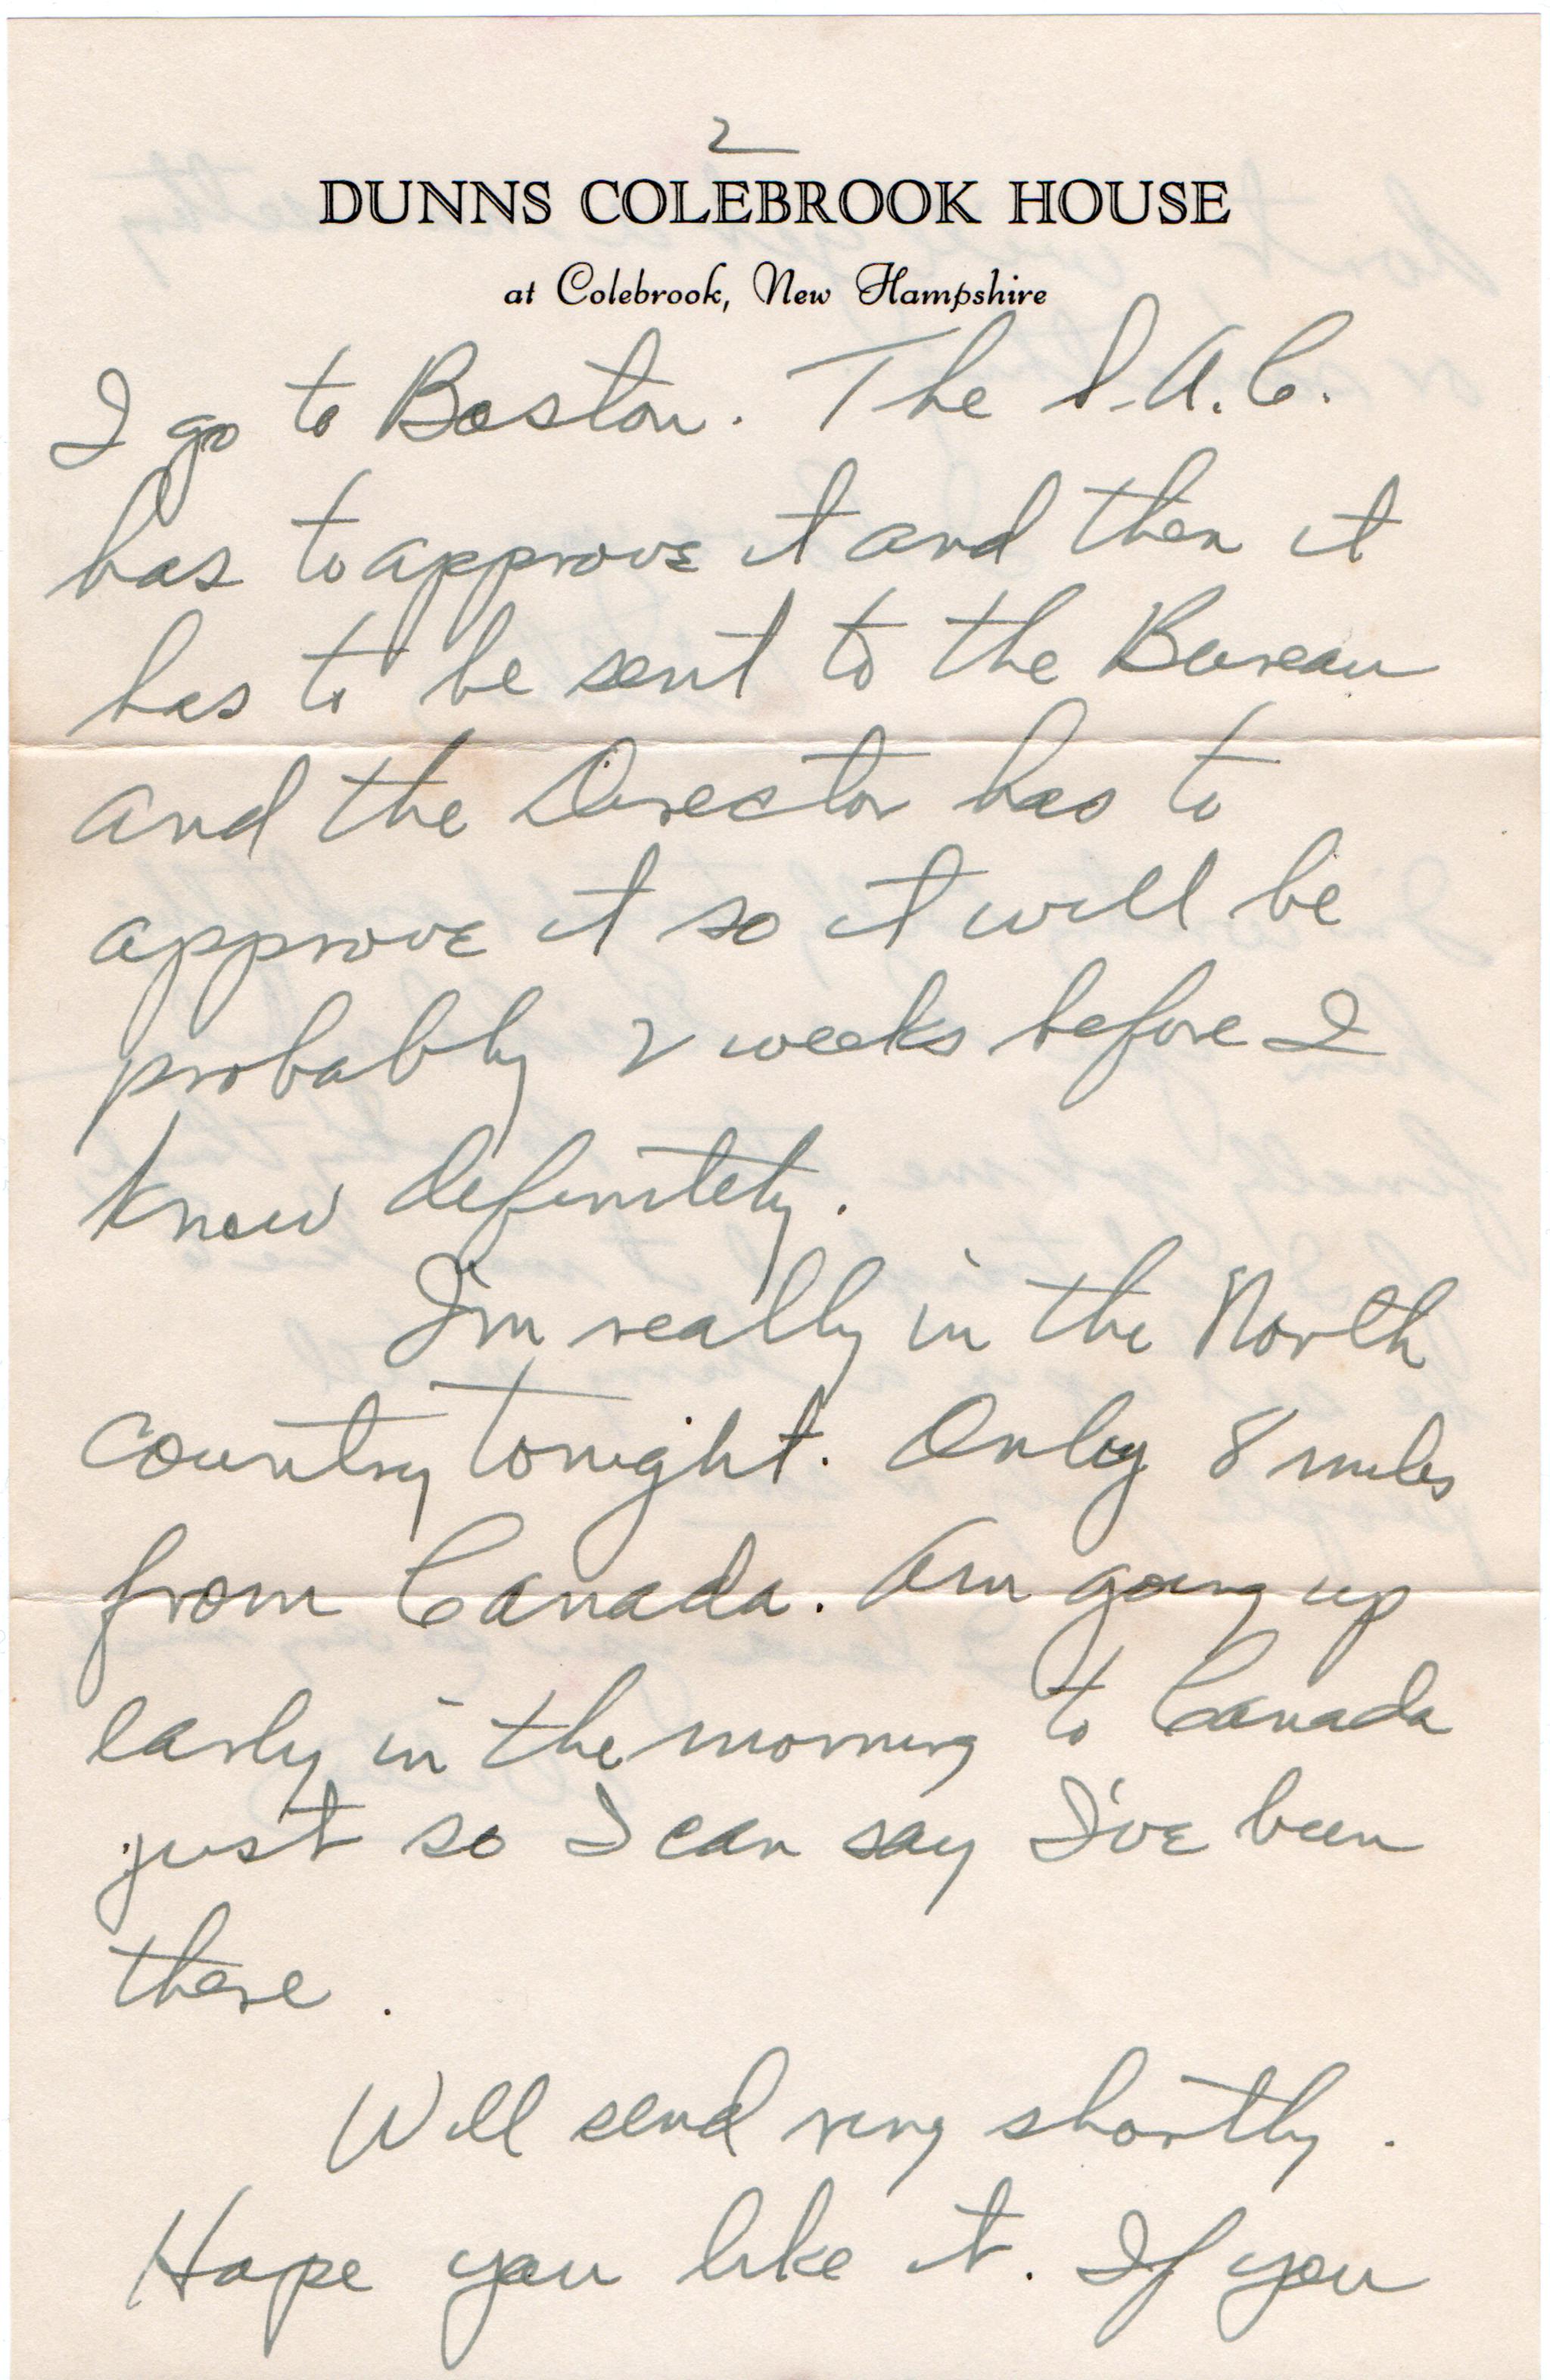 2
DUNNS COLEBROOK HOUSE
at Colebrook, New Hampshire
I go to Boston. The S.A.C.
has to approve it and then it
has to be sent to the Bureau
and the Director has to
approve it so it will be
probably 2 weeks before I
know definitely.
I'm really in the North
country tonight. Only 8 miles
from Canada. Am going up
early in the morning to Canada
just so I can say I've been
there.
Will send ring shortly.
Hope you like it. If you